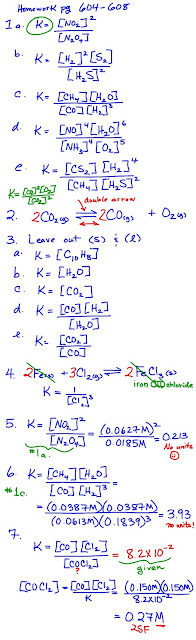 Homework pg 604-608
1 a. K = [NO₂]² / [N₂O₄]
b. K = [H₂]² [S₂] / [H₂S]²
c. K = [CH₄][H₂O] / [CO][H₂]³
d. K = [NO]⁴[H₂O]⁶ / [NH₃]⁴[O₂]⁵
e. K = [CS₂][H₂]⁴ / [CH₄][H₂S]²
double arrow
K = [CO]²[O₂] / [CO₂]²
2. 2CO₂(g) ⇌ 2CO(g) + O₂(g)
3. Leave out (s) & (l)
a. K = [C₁₀H₈]
b. K = [H₂O]
c. K = [CO₂]
d. K = [CO][H₂] / [H₂O]
e. K = [CO₂] / [CO]
4. 2Fe(s) + 3Cl₂(g) ⇌ 2FeCl₃(s)
iron (III) chloride
K = 1 / [Cl₂]³
5. K = [NO₂]² / [N₂O₄] = (0.0627M)² / 0.0185M = 0.213
#1a.
No units
6. K = [CH₄][H₂O] / [CO][H₂]³ =
#1c.
= (0.0387M)(0.0387M) / (0.0613M)(0.1839)³ = 3.93
no units!
7.
K = [CO][Cl₂] / [COCl₂] = 8.2×10⁻²
given
[COCl₂] = [CO][Cl₂] / K = (0.150M)(0.150M) / 8.2×10⁻²
= 0.27M
2SF